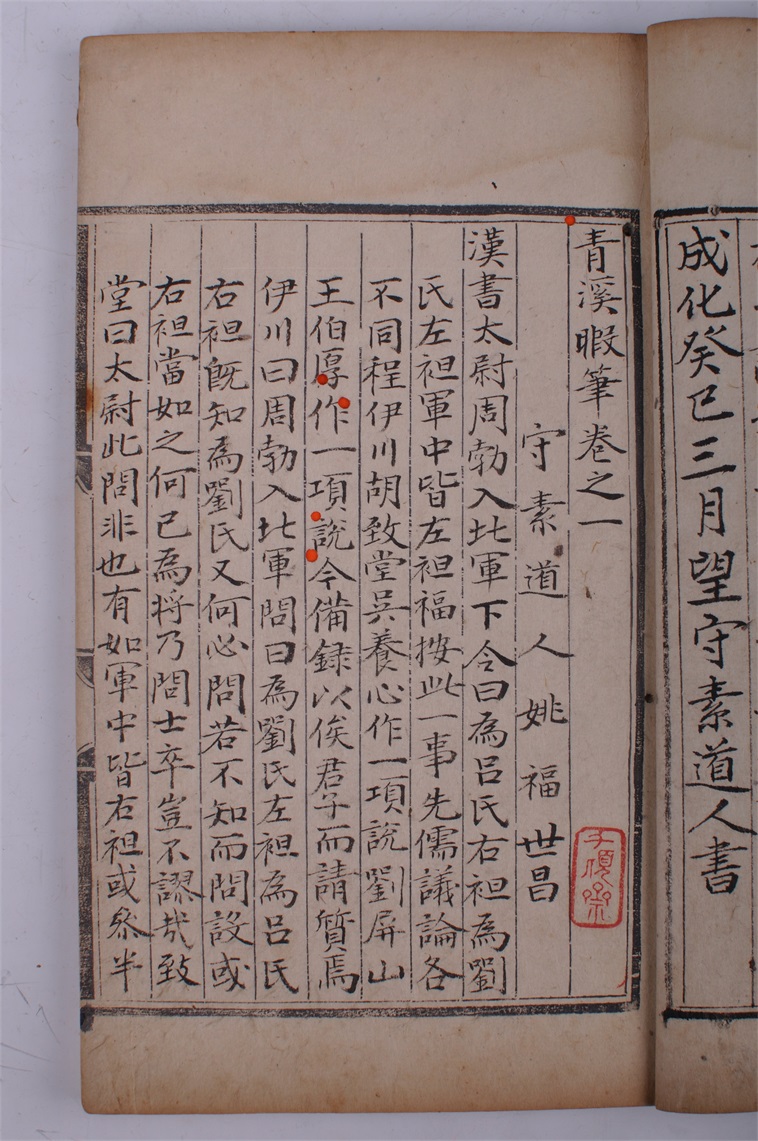 成化癸巳三月望守素道人書
青溪暇筆卷之一
守素道人姚福世昌
漢書太尉周勃入北軍下令曰為呂氏右袒為劉
氏左袒軍中皆左袒福按此一事先儒議論各
不同程伊川胡致堂吳養心作一項說劉屏山
王伯厚作一項說今備錄以俟君子而請質焉
伊川曰周勃入北軍問曰為劉氏左袒為呂氏
右袒既知為劉氏又何必問若不知而問設或
右袒當如之何已為將乃問士卒豈不謬哉致
堂曰太尉此問非也有如軍中皆右袒或參半